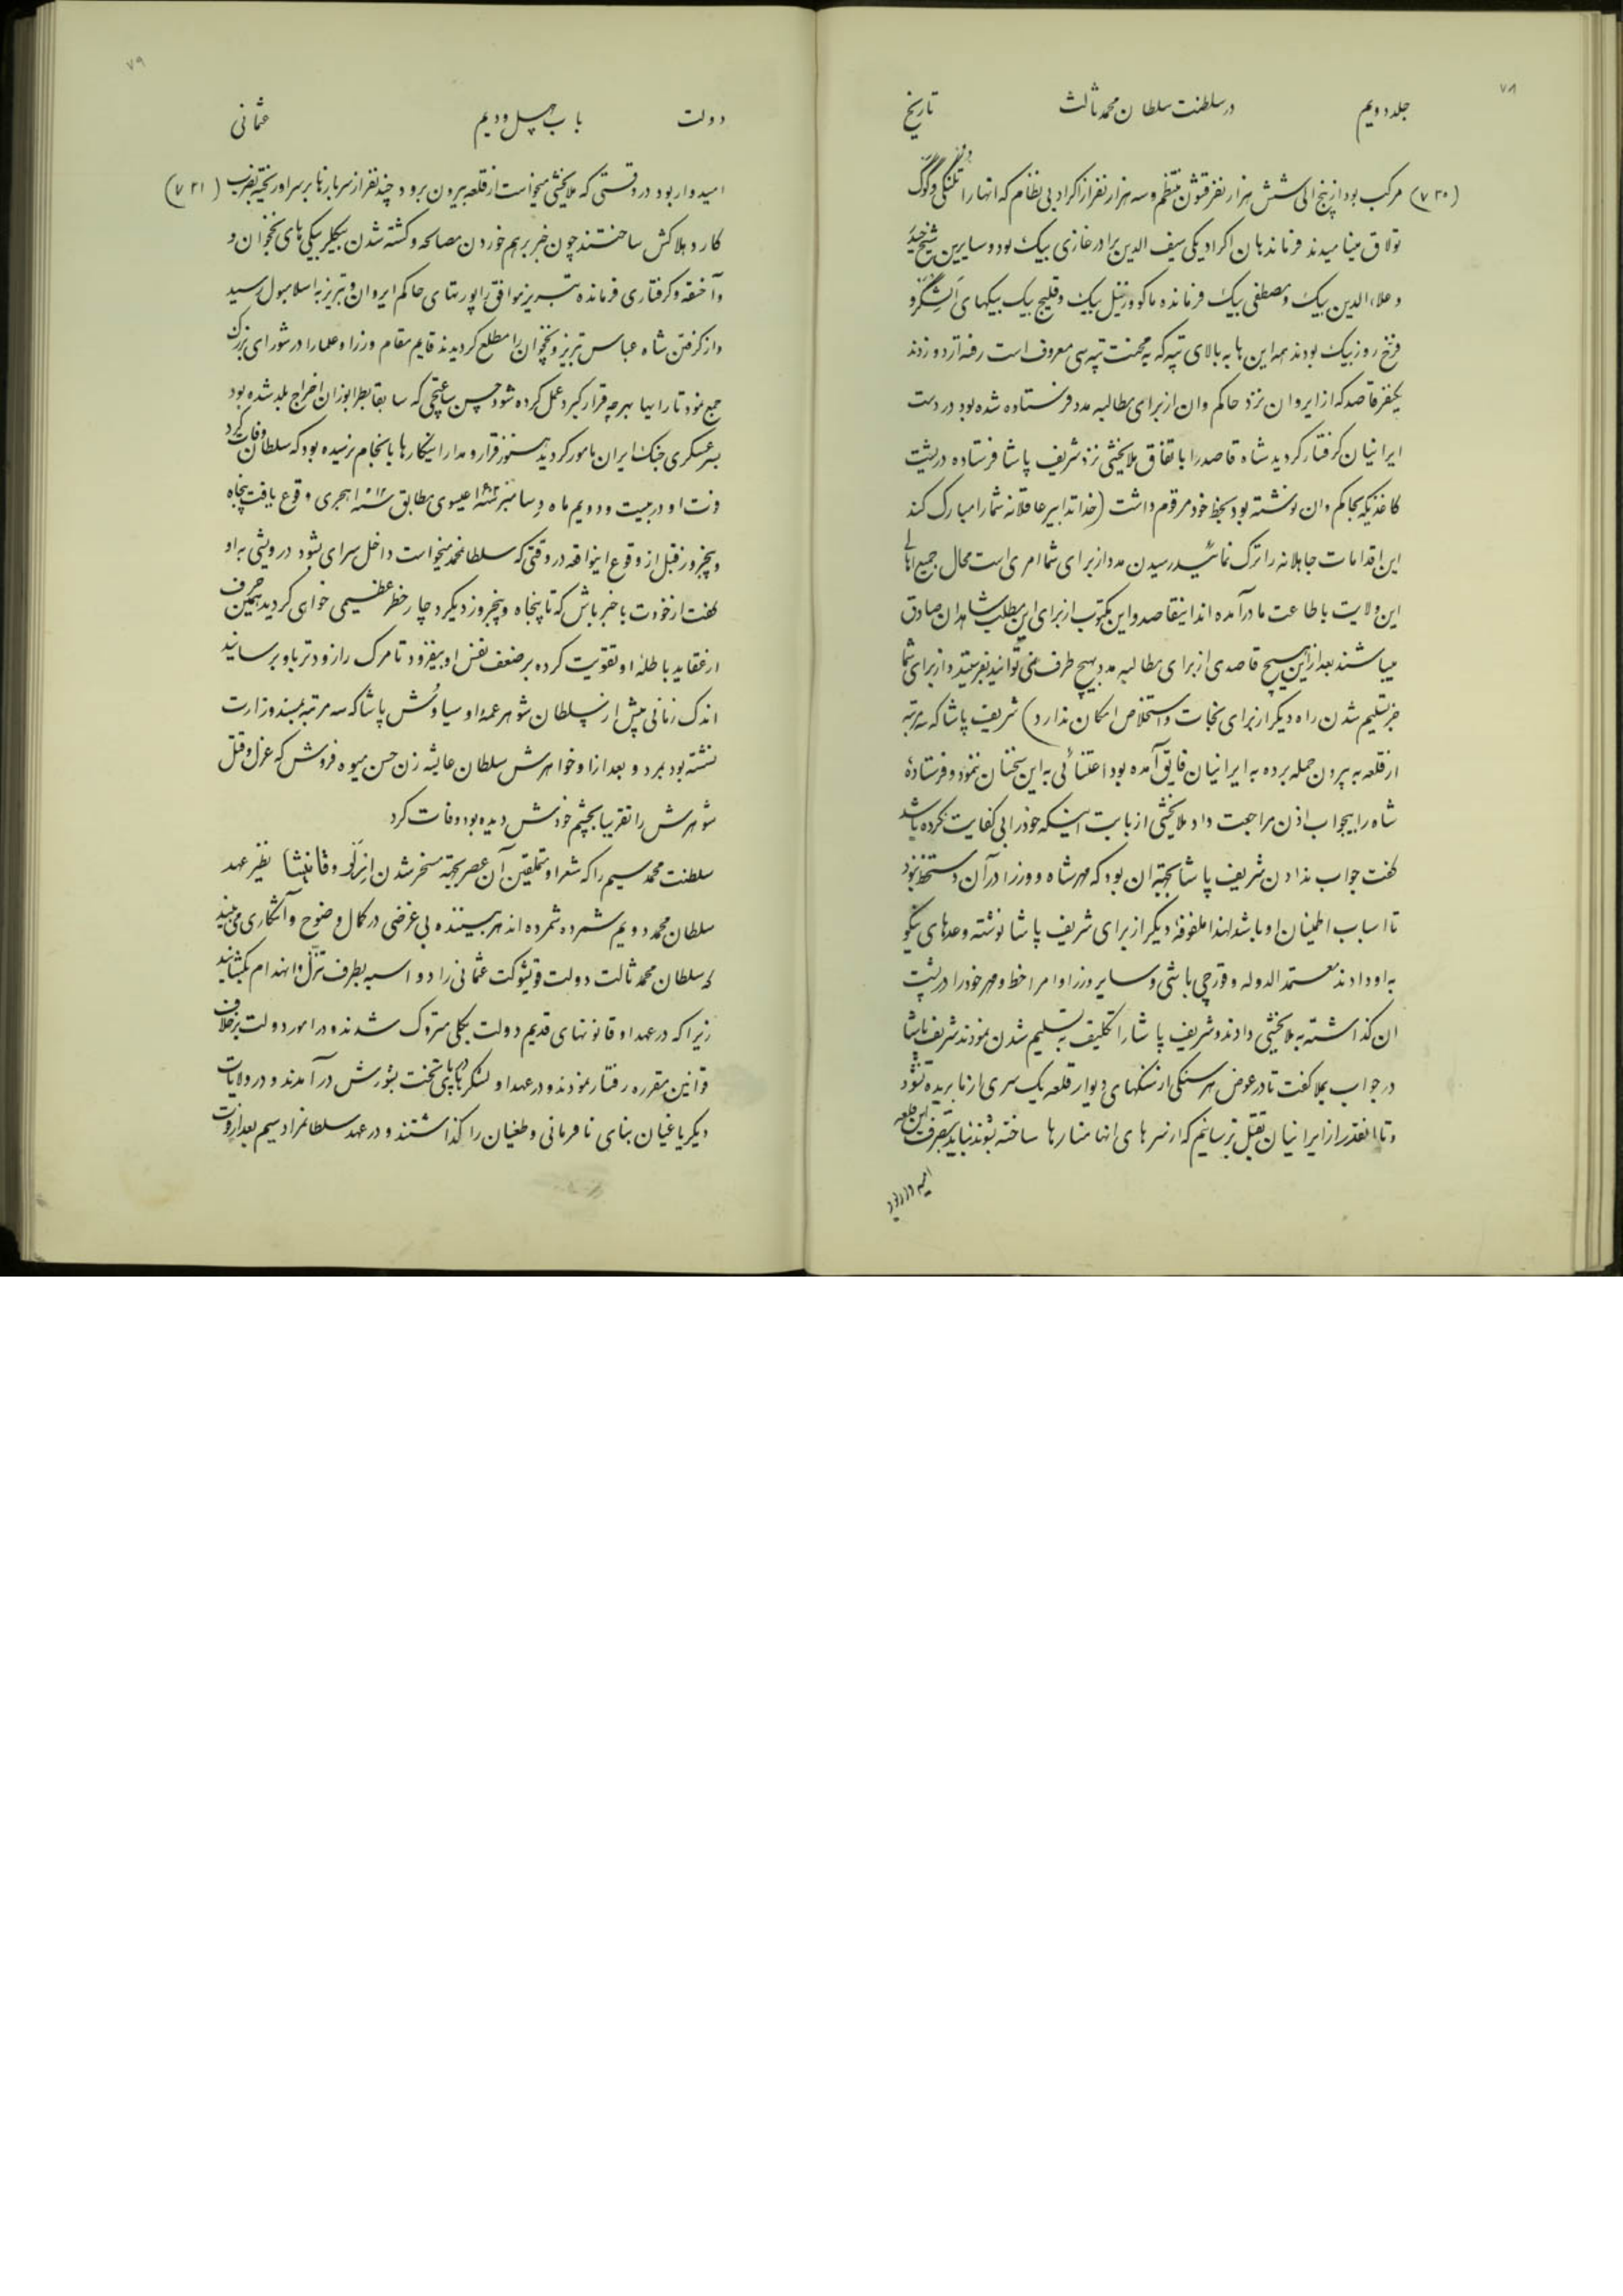 ۷۸
جلد دویم در سلطنت سلطان محمد ثالث تاریخ
(۷۳۰) مرکب بود از پنج الی شش هزار نفر قشون منتظم و سه هزار نفر از اکراد بی نظام که انها را
تولاق مینامیدند فرماندهان اکراد یکی سیف الدین برادر غازی بیک بود و سایرین شیخ حیدر
و علاءالدین بیک و مصطفی بیک فرمانده ماکو و زینل بیک و قلیج بیک بیکهای
فرخ روز بیک بودند همه این ها به بالای تپه که به محنت تپه سی معروف است رفته اردو زدند
یکنفر قاصد که از ایروان نزد حاکم وان از برای مطالبه مدد فرستاده شده بود در دست
ایرانیان گرفتار گردید شاه قاصد را باتفاق ملابخشی نزد شریف پاشا فرستاده در پشت
کاغذیکه بحاکم وان نوشته بود بخط خود مرقوم داشت (خدا تدابیر عاقلانه شما را مبارک کند
این اقدامات جاهلانه را ترک نمائید رسیدن مدد از برای شما امری است محال جمیع اهالی
این ولایت باطاعت ما درآمده اند اینقاصد و این مکتوب از برای این مطلب شاهدان صادق
میباشند بعد از این هیچ قاصدی از برای مطالبه مدد بهیچ طرف نمی توانید بفرستید و از برای شما
جز تسلیم شدن راه دیگر از برای نجات و استخلاص امکان ندارد) شریف پاشا که سه مرتبه
از قلعه به بیرون حمله برده به ایرانیان فایق آمده بود اعتنائی به این سخنان ننمود و فرستادهٔ
شاه را بیجواب اذن مراجعت داد ملابخشی از بابت اینکه خود را بی کفایت نکرده باشد
گفت جواب ندادن شریف پاشا بجهة ان بود که مهر شاه و وزرا در آن دستخط نبود
تا اسباب اطمینان او باشد لهذا ملفوفهٔ دیگر از برای شریف پاشا نوشته وعدهای نیکو
به او دادند معتمد الدوله و قورچی باشی و سایر وزرا و امرا خط و مهر خود را در پشت
ان گذاشته به ملابخشی دادند و شریف پاشا را تکلیف به تسلیم شدن نمودند شریف پاشا
در جواب بملا گفت تا در عوض هر سنگی از سنگهای دیوار قلعه یک سری از ما بریده نشود
و تا انقدر از ایرانیان بقتل نرسانیم که از سرهای انها منارها ساخته شوند نباید بتصرف این قلعه
امیدوار بود
۷۹
دولت باب چهل و دویم عثمانی
امیدوار بود در وقتی که ملابخشی میخواست از قلعه بیرون برود چند نفر از سربازها بر سر او ریخته بضرب (۷۳۱)
کارد هلاکش ساختند چون خبر برهم خوردن مصالحه و کشته شدن بیگلربیگی های نخجوان و
و آخسقه و گرفتاری فرمانده تبریز موافق راپورتهای حاکم ایروان و تبریز به اسلامبول رسید
و از گرفتن شاه عباس تبریز و نخجوان را مطلع گردیدند قایم مقام وزرا و علما را در شورای بزرگ
جمع نمود تا رایها بهر چه قرار گیرد عمل کرده شود حسن ساعتچی که سابقا بطرابوزان اخراج بلد شده بود
بسر عسکری جنک ایران مامور گردید هنوز قرار و مدار اینکارها بانجام نرسیده بود که سلطان وفات کرد
فوت او در بیست و دویم ماه دسامبر سنه ۱۶۰۳ عیسوی مطابق سنه ۱۰۱۲ هجری وقوع یافت پنجاه
و پنجروز قبل از وقوع اینواقعه در وقتی که سلطانمحمد میخواست داخل سرای بشود درویشی به او
گفت از خودت باخبر باش که تا پنجاه و پنجروز دیگر دچار خطر عظیمی خواهی گردید همین حرف
از عقاید باطلهٔ او تقویت کرده بر ضعف نفس او بیفزود تا مرک را زودتر باو برسانید
اندک زمانی پیش از سلطان شوهر عمهٔ او سیاوش پاشا که سه مرتبه بمسند وزارت
نشسته بود بمرد و بعد از او خواهرش سلطان عایشه زن حسن میوه فروش که عزل و قتل
شوهرش را تقریبا بچشم خودش دیده بود وفات کرد
سلطنت محمد سیم را که شعرا و متملقین آن عصر بجهة مسخر شدن ارلو و قانیشا نظیر عهد
سلطان محمد دویم شمرده اند هر بیننده بی غرضی در کمال وضوح و آشکاری می بیند
که سلطان محمد ثالث دولت قویشوکت عثمانی را دو اسبه بطرف تنزل و انهدام بکشانید
زیرا که در عهد او قانونهای قدیم دولت بکلی متروک شدند و در امور دولت برخلاف
قوانین مقرره رفتار نمودند و در عهد او لشکرها در پای تخت بشورش درآمدند و در ولایات
دیگر یاغیان بنای نافرمانی و طغیان را گذاشتند و در عهد سلطانمراد سیم بعد از فوت